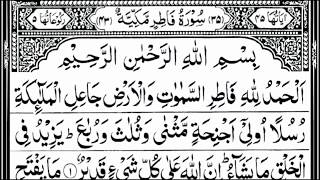 اٰیَاتُهَا ٤٥ (٣٥) سُوْرَةُ فَاطِرٍ مَّكِّیَّةٌ (٤٣) رُكُوْعَاتُهَا ٥
بِسْمِ اللّٰهِ الرَّحْمٰنِ الرَّحِیْمِ
اَلْحَمْدُ لِلّٰهِ فَاطِرِ السَّمٰوٰتِ وَالْاَرْضِ جَاعِلِ الْمَلٰٓىِٕكَةِ
رُسُلًا اُولِیْۤ اَجْنِحَةٍ مَّثْنٰی وَثُلٰثَ وَرُبٰعَ ؕ یَزِیْدُ فِی
الْخَلْقِ مَا یَشَآءُ ؕ اِنَّ اللّٰهَ عَلٰی كُلِّ شَیْءٍ قَدِیْرٌ ۝١ مَا یَفْتَحِ